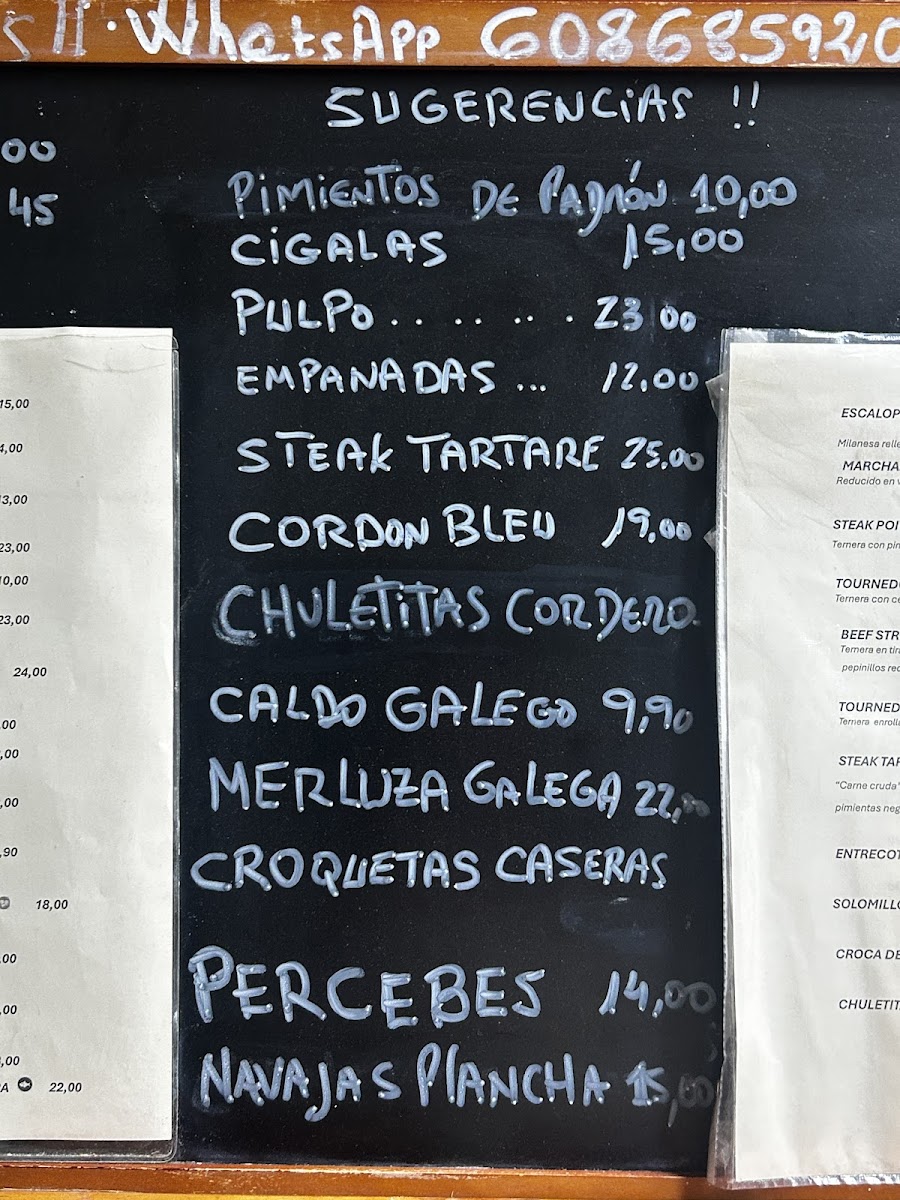 WhatsApp 608685920
SUGERENCIAS !!
00
45
PIMIENTOS DE PADRÓN 10,00
CIGALAS 15,00
PULPO . . . . . . . . 23 00
EMPANADAS ... 12.00
STEAK TARTARE 25.00
CORDON BLEU 19,00
CHULETITAS CORDERO
CALDO GALEGO 9,90
MERLUZA GALEGA 22,00
CROQUETAS CASERAS
PERCEBES 14,00
NAVAJAS PLANCHA 15,00
15,00
4,00
13,00
23,00
10,00
23,00
24,00
,00
,00
,00
,90
18,00
,00
,00
,00
22,00
ESCALOP
Milanesa relle
MARCHA
Reducido en v
STEAK POI
Ternera con pin
TOURNEDO
Ternera con ce
BEEF STR
Ternera en tir
pepinillos rec
TOURNED
Ternera enrolla
STEAK TAR
"Carne cruda"
pimientas neg
ENTRECOT
SOLOMILLO
CROCA DE
CHULETIT